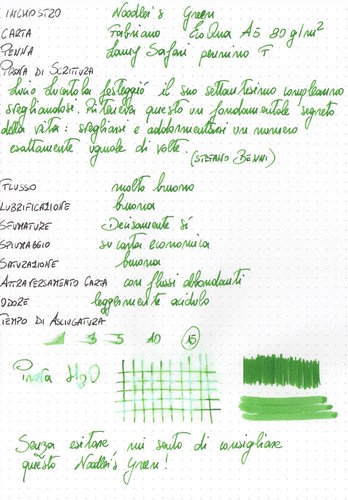 INCHIOSTRO Noodler's Green
CARTA Fabriano EcoQua A5 80 g/m²
PENNA Lamy Safari pennino F
PROVA DI SCRITTURA
Livio Lucertola festeggiò il suo settantesimo compleanno
svegliandosi. Riteneva questo un fondamentale segreto
della vita: svegliarsi e addormentarsi un numero
esattamente uguale di volte. (STEFANO BENNI)
FLUSSO molto buono
LUBRIFICAZIONE buona
SFUMATURE Decisamente sì
SPIUMAGGIO su carta economica
SATURAZIONE buona
ATTRAVERSAMENTO CARTA con flussi abbondanti
ODORE leggermente acidulo
TEMPO DI ASCIUGATURA
1 3 5 10 15
Prova H2O
Senza esitare mi sento di consigliare
questo Noodler's Green!